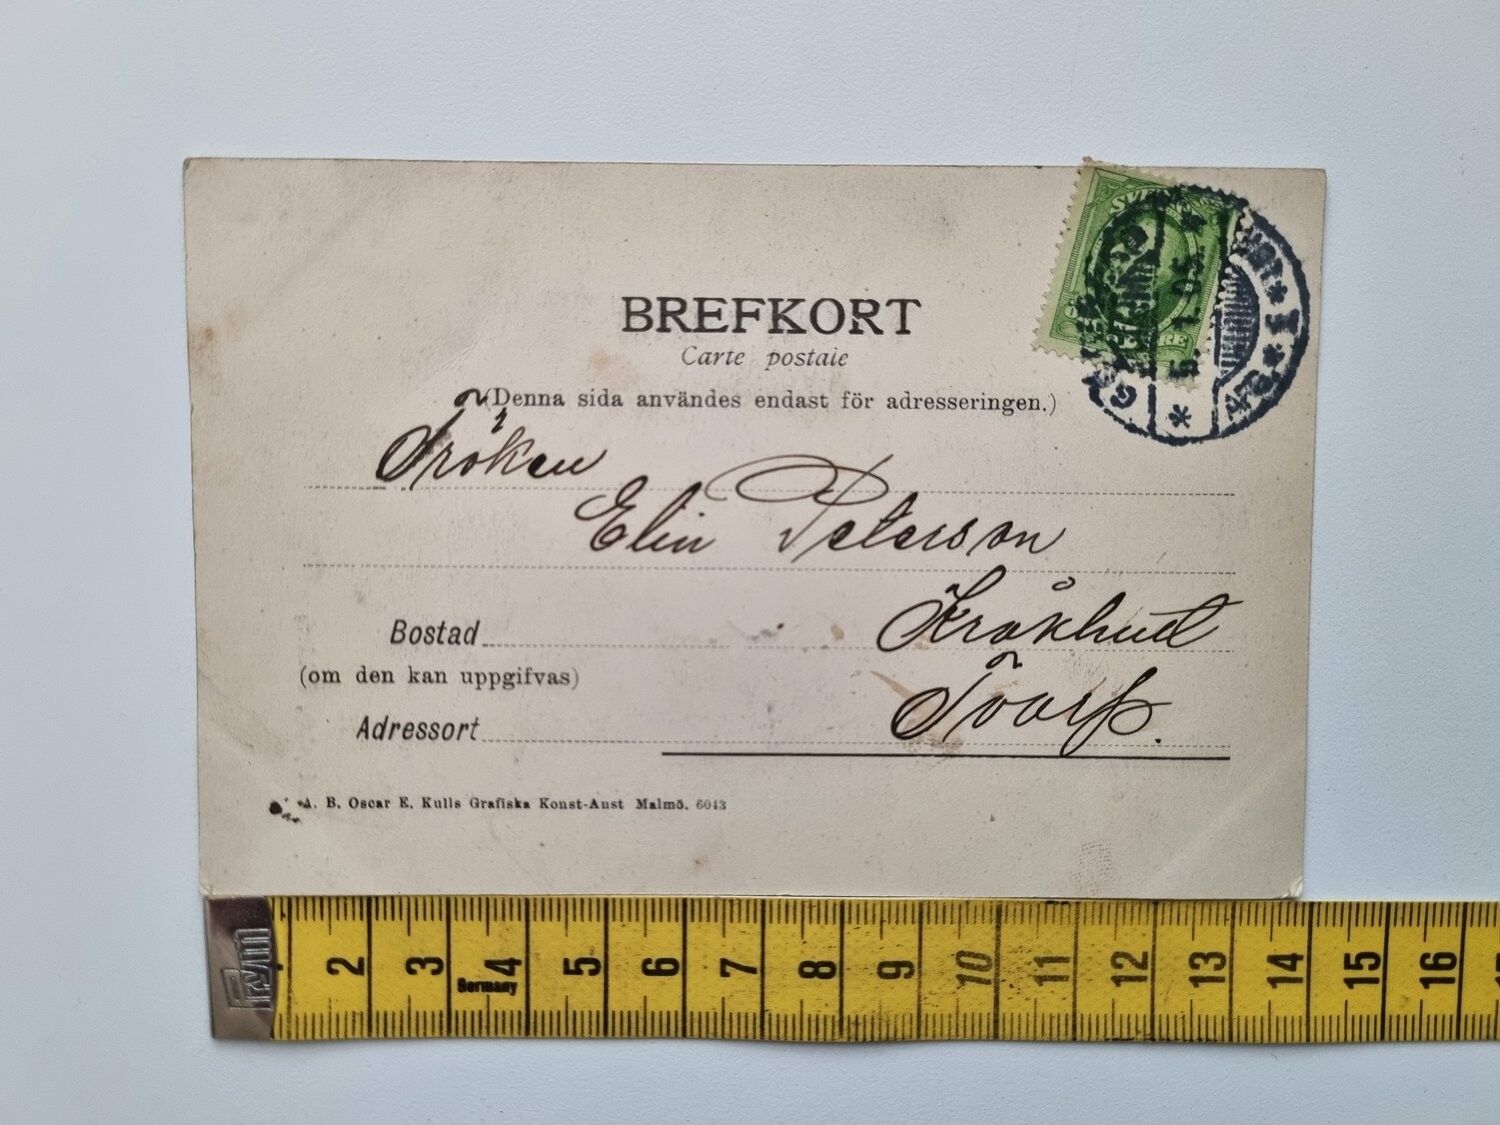 BREFKORT
Carte postale
(Denna sida användes endast för adresseringen.)
Fröken
Elin Peterson
Kråkhult
Bostad
(om den kan uppgifvas)
Tvärsp.
Adressort
A. B. Oscar E. Kulls Grafiska Konst-Anst Malmö. 6043
SVERIGE
5. 1. 05.
Prym
Germany
2 3 4 5 6 7 8 9 10 11 12 13 14 15 16